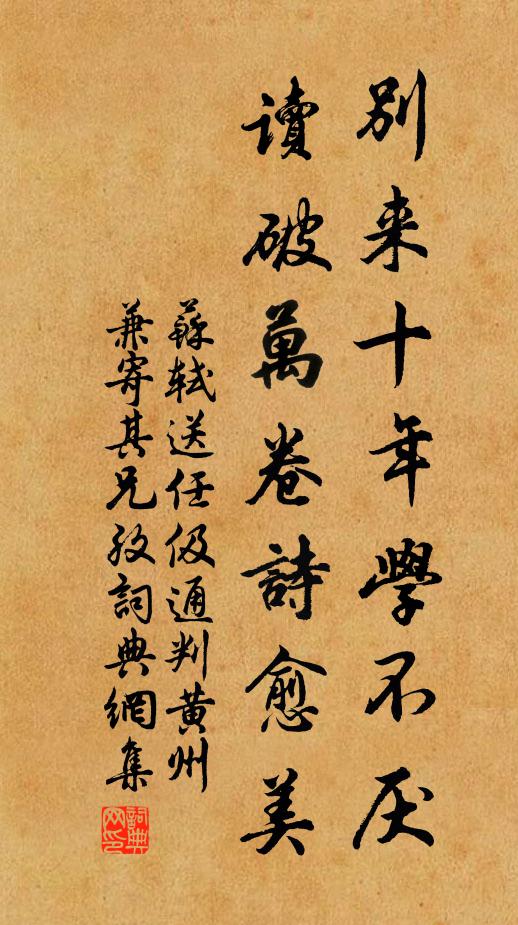 别来十年學不厌
讀破萬卷詩愈美
蘇轼送任伋通判黄州
兼寄其兄孜詞典網集
詞典网印